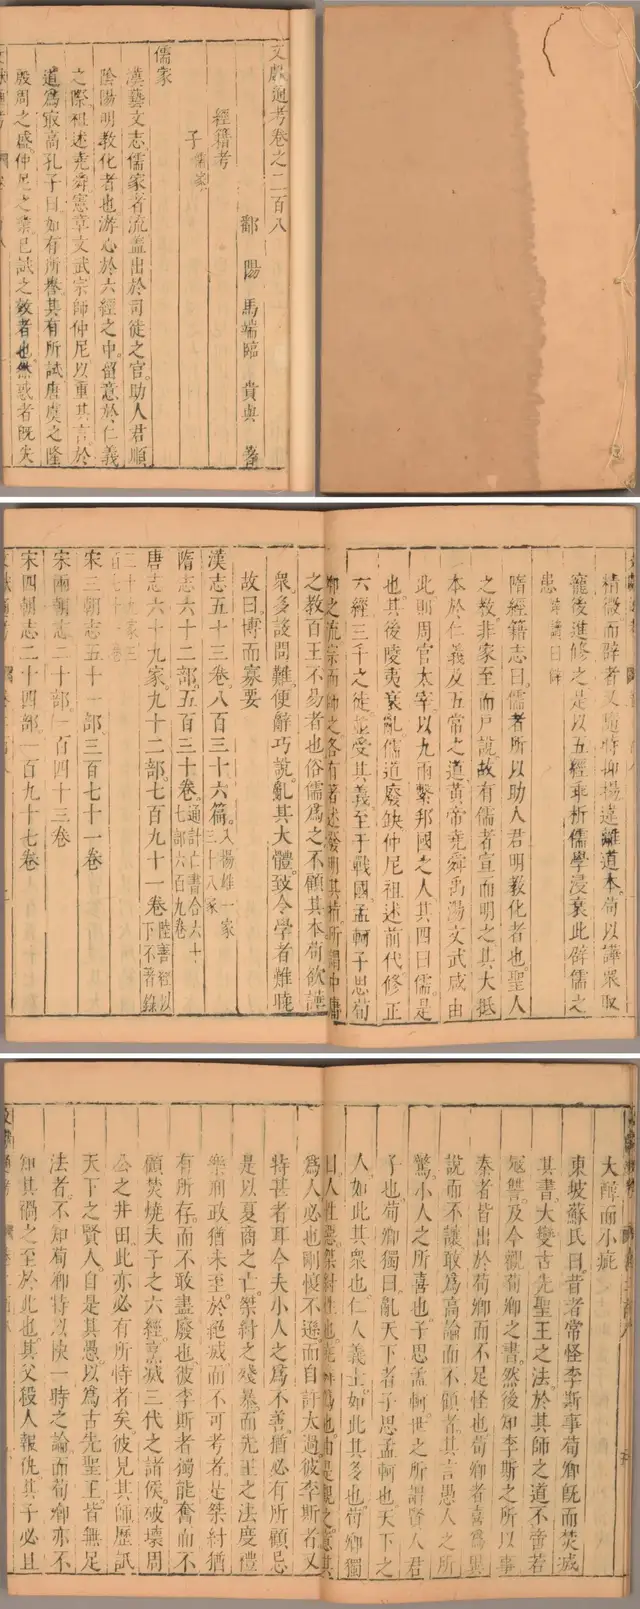 文獻通考卷之二百八
鄱陽馬端臨貴與著
經籍考
子儒家
儒家
漢藝文志儒家者流蓋出於司徒之官助人君順
陰陽明教化者也游心於六經之中留意於仁義
之際祖述堯舜憲章文武宗師仲尼以重其言於
道為最高孔子曰如有所譽其有所試唐虞之隆
殷周之盛仲尼之業已試之效者也然惑者既失
精微而辟者又隨時抑揚違離道本苟以譁眾取
寵後進修之是以五經乖析儒學浸衰此辟儒之
患
隋經籍志曰儒者所以助人君明教化者也聖人
之教非家至而戶說故有儒者宣而明之其大抵
本於仁義及五常之道黃帝堯舜禹湯文武咸由
此則周官太宰以九兩繫邦國之人其四曰儒是
也其後陵夷衰亂儒道廢缺仲尼祖述前代修正
六經三千之徒並受其義至于戰國孟軻子思荀
卿之流宗而師之各有著述發明其指所謂中庸
之教百王不易者也俗儒為之不顧其本苟欲譁
眾多設問難便辭巧說亂其大體致令學者難曉
故曰博而寡要
漢志五十三卷八百三十六篇入揚雄一家三十八篆
隋志六十二部五百三十卷通計亡書合六十七部六百九卷
唐志六十九家九十二部七百九十一卷陸善經以下不著錄
三十九家三百七十一卷
宋三朝志五十一部三百七十一卷
宋兩朝志二十部一百四十三卷
宋四朝志二十四部一百九十七卷
大醇而小疵
東坡蘇氏曰昔者常怪李斯事荀卿既而焚滅
其書大變古先聖王之法於其師之道不啻若
寇讐及今觀荀卿之書然後知李斯之所以事
秦者皆出於荀卿而不足怪也荀卿者喜為異
說而不讓敢為高論而不顧者其言愚人之所
驚小人之所喜也子思孟軻世之所謂賢人君
子也荀卿獨曰亂天下者子思孟軻也天下之
人如此其眾也仁人義士如此其多也荀卿獨
曰人性惡桀紂性也堯舜偽也由是觀之意其
為人必也剛愎不遜而自許太過彼李斯者又
特甚者耳今夫小人之為不善猶必有所顧忌
是以夏商之亡桀紂之殘暴而先王之法度禮
樂刑政猶未至於絕滅而不可考者是桀紂猶
有所存而不敢盡廢也彼李斯者獨能奮而不
顧焚燒夫子之六經烹滅三代之諸侯破壞周
公之井田此亦必有所恃者矣彼見其師歷詆
天下之賢人自是其愚以為古先聖王皆無足
法者不知荀卿特以快一時之論而荀卿亦不
知其禍之至於此也其父殺人報仇其子必且